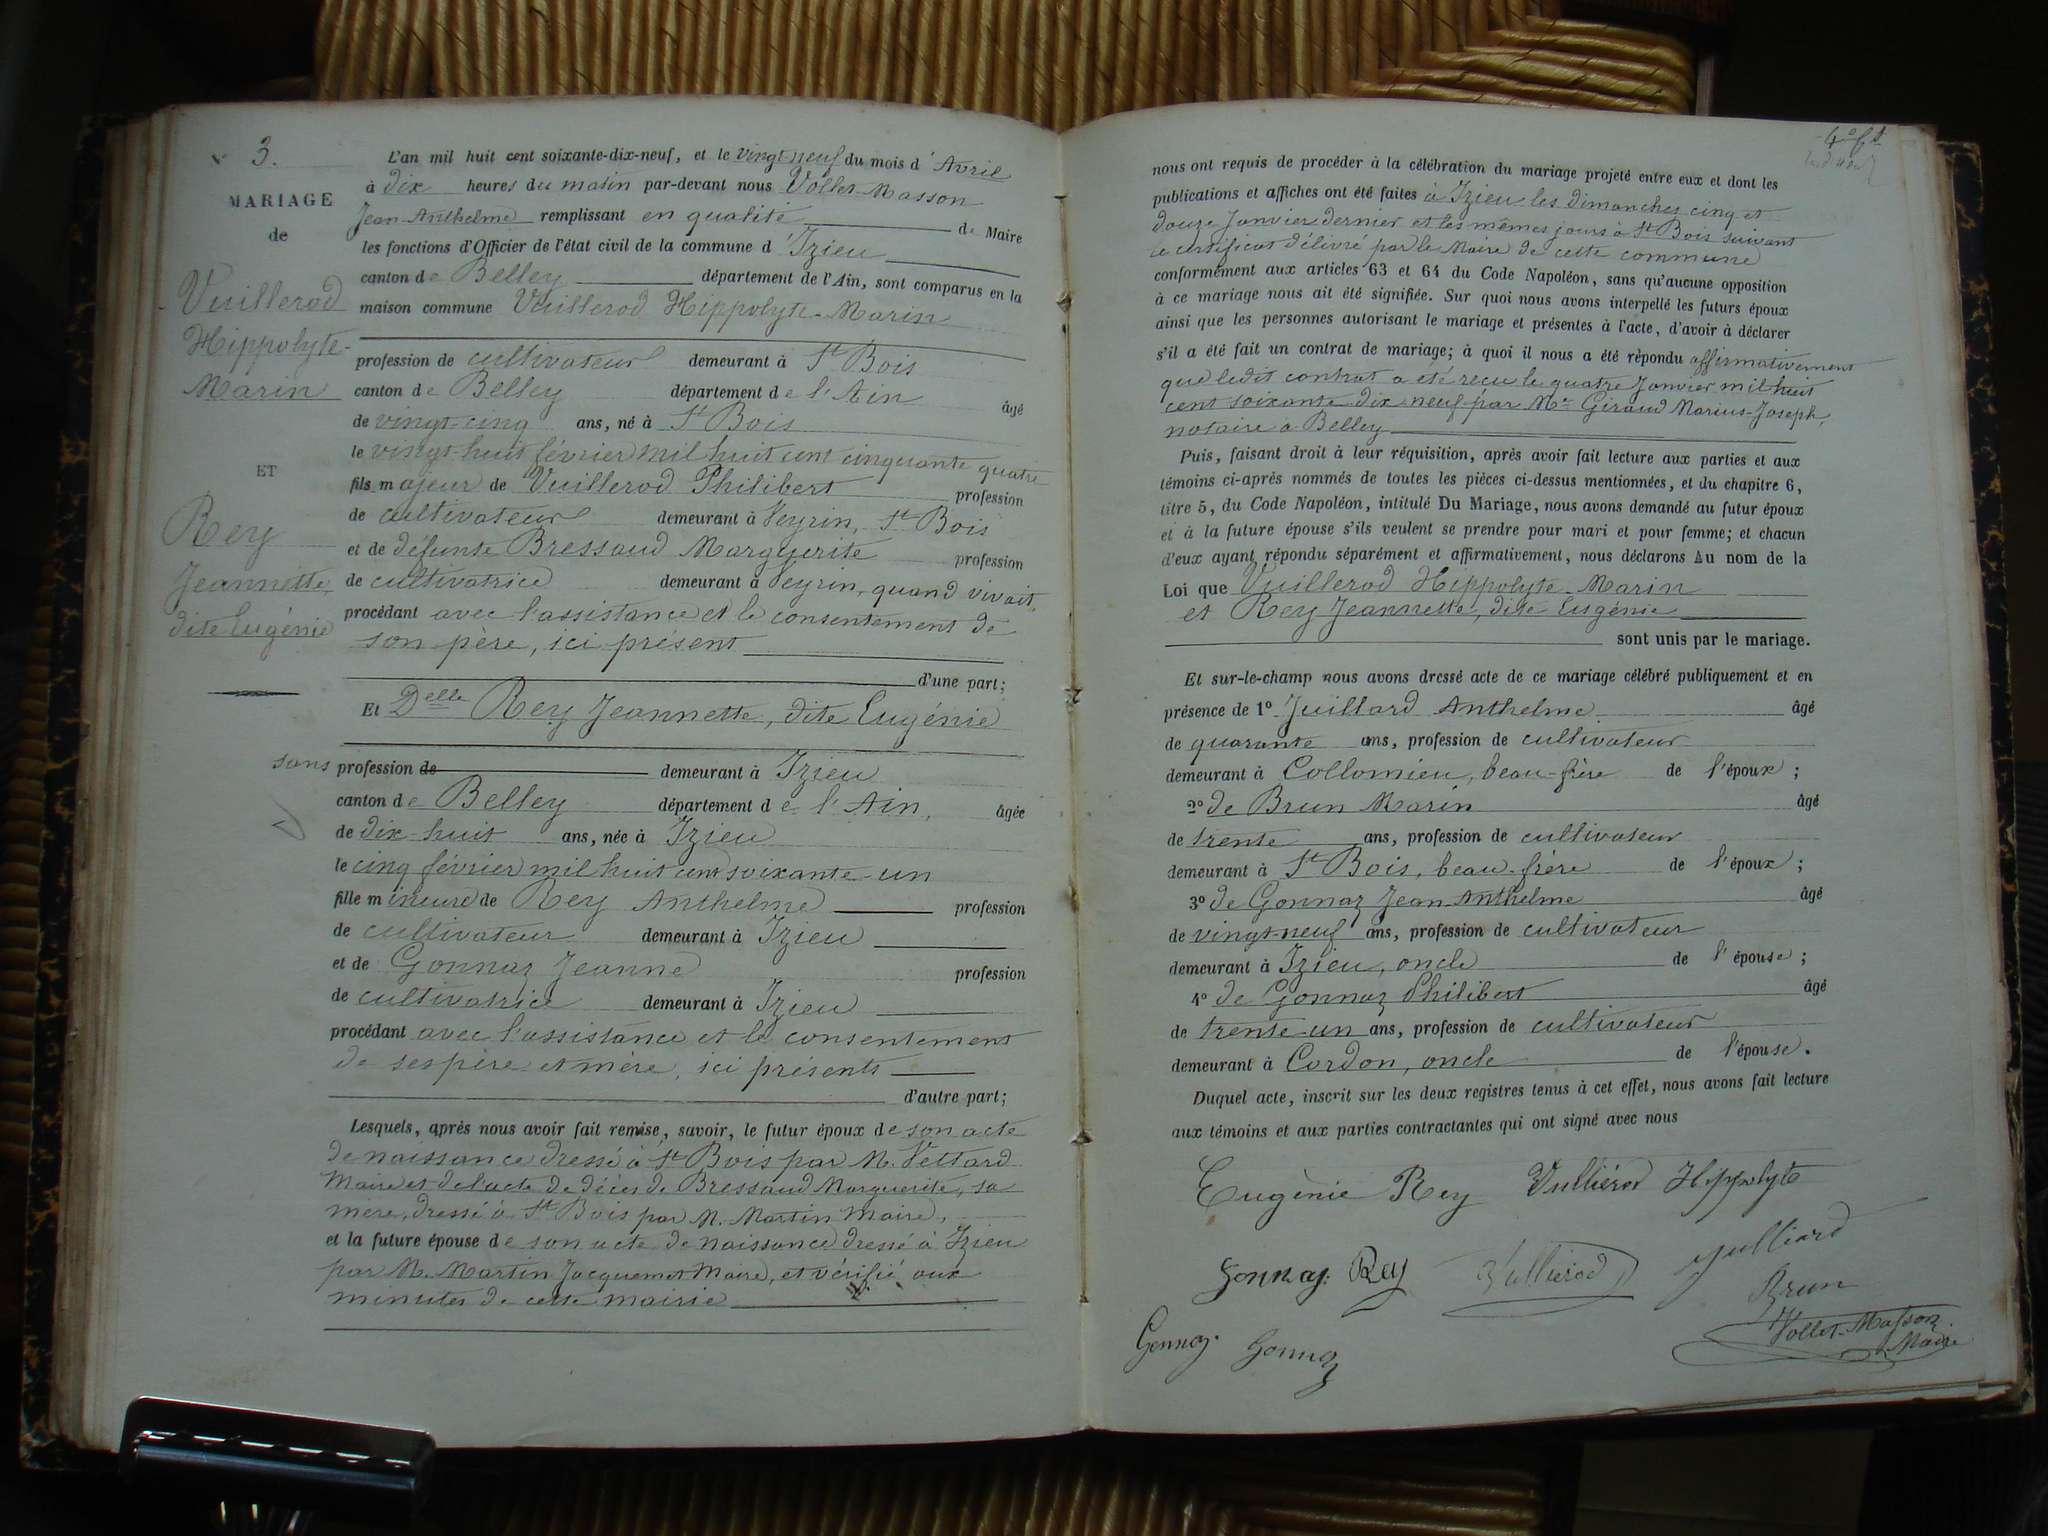 3.
MARIAGE
de
Vuillerod
Hippolyte-
Marin
ET
Rey
Jeannette,
dite Eugénie
L'an mil huit cent soixante-dix-neuf, et le vingt-neuf du mois d'Avril
à dix heures du matin par-devant nous Vollet-Masson
Jean-Anthelme remplissant en qualité de Maire
les fonctions d'Officier de l'état civil de la commune d'Izieu
canton de Belley département de l'Ain, sont comparus en la
maison commune Vuillerod Hippolyte-Marin
profession de cultivateur demeurant à St Bois
canton de Belley département de l'Ain âgé
de vingt-cinq ans, né à St Bois
le vingt-huit février mil huit cent cinquante quatre
fils majeur de Vuillerod Philibert profession
de cultivateur demeurant à Veyrin, St Bois
et de défunte Bressaud Marguerite profession
de cultivatrice demeurant à Veyrin, quand vivait,
procédant avec l'assistance et le consentement de
son père, ici présent
d'une part;
Et Delle Rey Jeannette, dite Eugénie
sans profession de demeurant à Izieu
canton de Belley département de l'Ain, âgée
de dix-huit ans, née à Izieu
le cinq février mil huit cent soixante-un
fille mineure de Rey Anthelme profession
de cultivateur demeurant à Izieu
et de Gonnaz Jeanne profession
de cultivatrice demeurant à Izieu
procédant avec l'assistance et le consentement
de ses père et mère, ici présents
d'autre part;
Lesquels, après nous avoir fait remise, savoir, le futur époux de son acte
de naissance dressé à St Bois par M. Vettard
Maire et de l'acte de décès de Bressaud Marguerite, sa
mère, dressé à St Bois par M. Martin Maire,
et la future épouse de son acte de naissance dressé à Izieu
par M. Martin Jacquemet Maire, et vérifié aux
minutes de cette mairie
nous ont requis de procéder à la célébration du mariage projeté entre eux et dont les
publications et affiches ont été faites à Izieu les dimanches cinq et
douze Janvier dernier et les mêmes jours à St Bois suivant
le certificat délivré par le Maire de cette commune
conformément aux articles 63 et 64 du Code Napoléon, sans qu'aucune opposition
à ce mariage nous ait été signifiée. Sur quoi nous avons interpellé les futurs époux
ainsi que les personnes autorisant le mariage et présentes à l'acte, d'avoir à déclarer
s'il a été fait un contrat de mariage; à quoi il nous a été répondu affirmativement
que ledit contrat a été reçu le quatre Janvier mil huit
cent soixante-dix-neuf par Me Giraud Marius-Joseph,
notaire à Belley
Puis, faisant droit à leur réquisition, après avoir fait lecture aux parties et aux
témoins ci-après nommés de toutes les pièces ci-dessus mentionnées, et du chapitre 6,
titre 5, du Code Napoléon, intitulé Du Mariage, nous avons demandé au futur époux
et à la future épouse s'ils veulent se prendre pour mari et pour femme; et chacun
d'eux ayant répondu séparément et affirmativement, nous déclarons Au nom de la
Loi que Vuillerod Hippolyte-Marin
et Rey Jeannette, dite Eugénie
sont unis par le mariage.
Et sur-le-champ nous avons dressé acte de ce mariage célébré publiquement et en
présence de 1º Juillard Anthelme âgé
de quarante ans, profession de cultivateur
demeurant à Collomieu, beau-frère de l'époux;
2º de Brun Marin âgé
de trente ans, profession de cultivateur
demeurant à St Bois, beau-frère de l'époux;
3º de Gonnaz Jean-Anthelme âgé
de vingt-neuf ans, profession de cultivateur
demeurant à Izieu, oncle de l'épouse;
4º de Gonnaz Philibert âgé
de trente-un ans, profession de cultivateur
demeurant à Cordon, oncle de l'épouse.
Duquel acte, inscrit sur les deux registres tenus à cet effet, nous avons fait lecture
aux témoins et aux parties contractantes qui ont signé avec nous
Eugènie Rey Vulliérod Hippolyte
Gonnaz Rey Vulliérod Julliard
Brun
Gonnaz Gonnaz Vollet-Masson
Maire